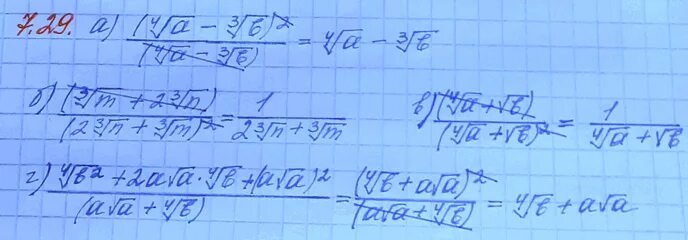 7.29. а) (⁴√a − ³√b)² / (⁴√a − ³√b) = ⁴√a − ³√b
б) (³√m + 2³√n) / (2³√n + ³√m)² = 1 / (2³√n + ³√m) в) (⁴√a + √b) / (⁴√a + √b)² = 1 / (⁴√a + √b)
г) (⁴√b² + 2a√a · ⁴√b + (a√a)²) / (a√a + ⁴√b) = (⁴√b + a√a)² / (a√a + ⁴√b) = ⁴√b + a√a